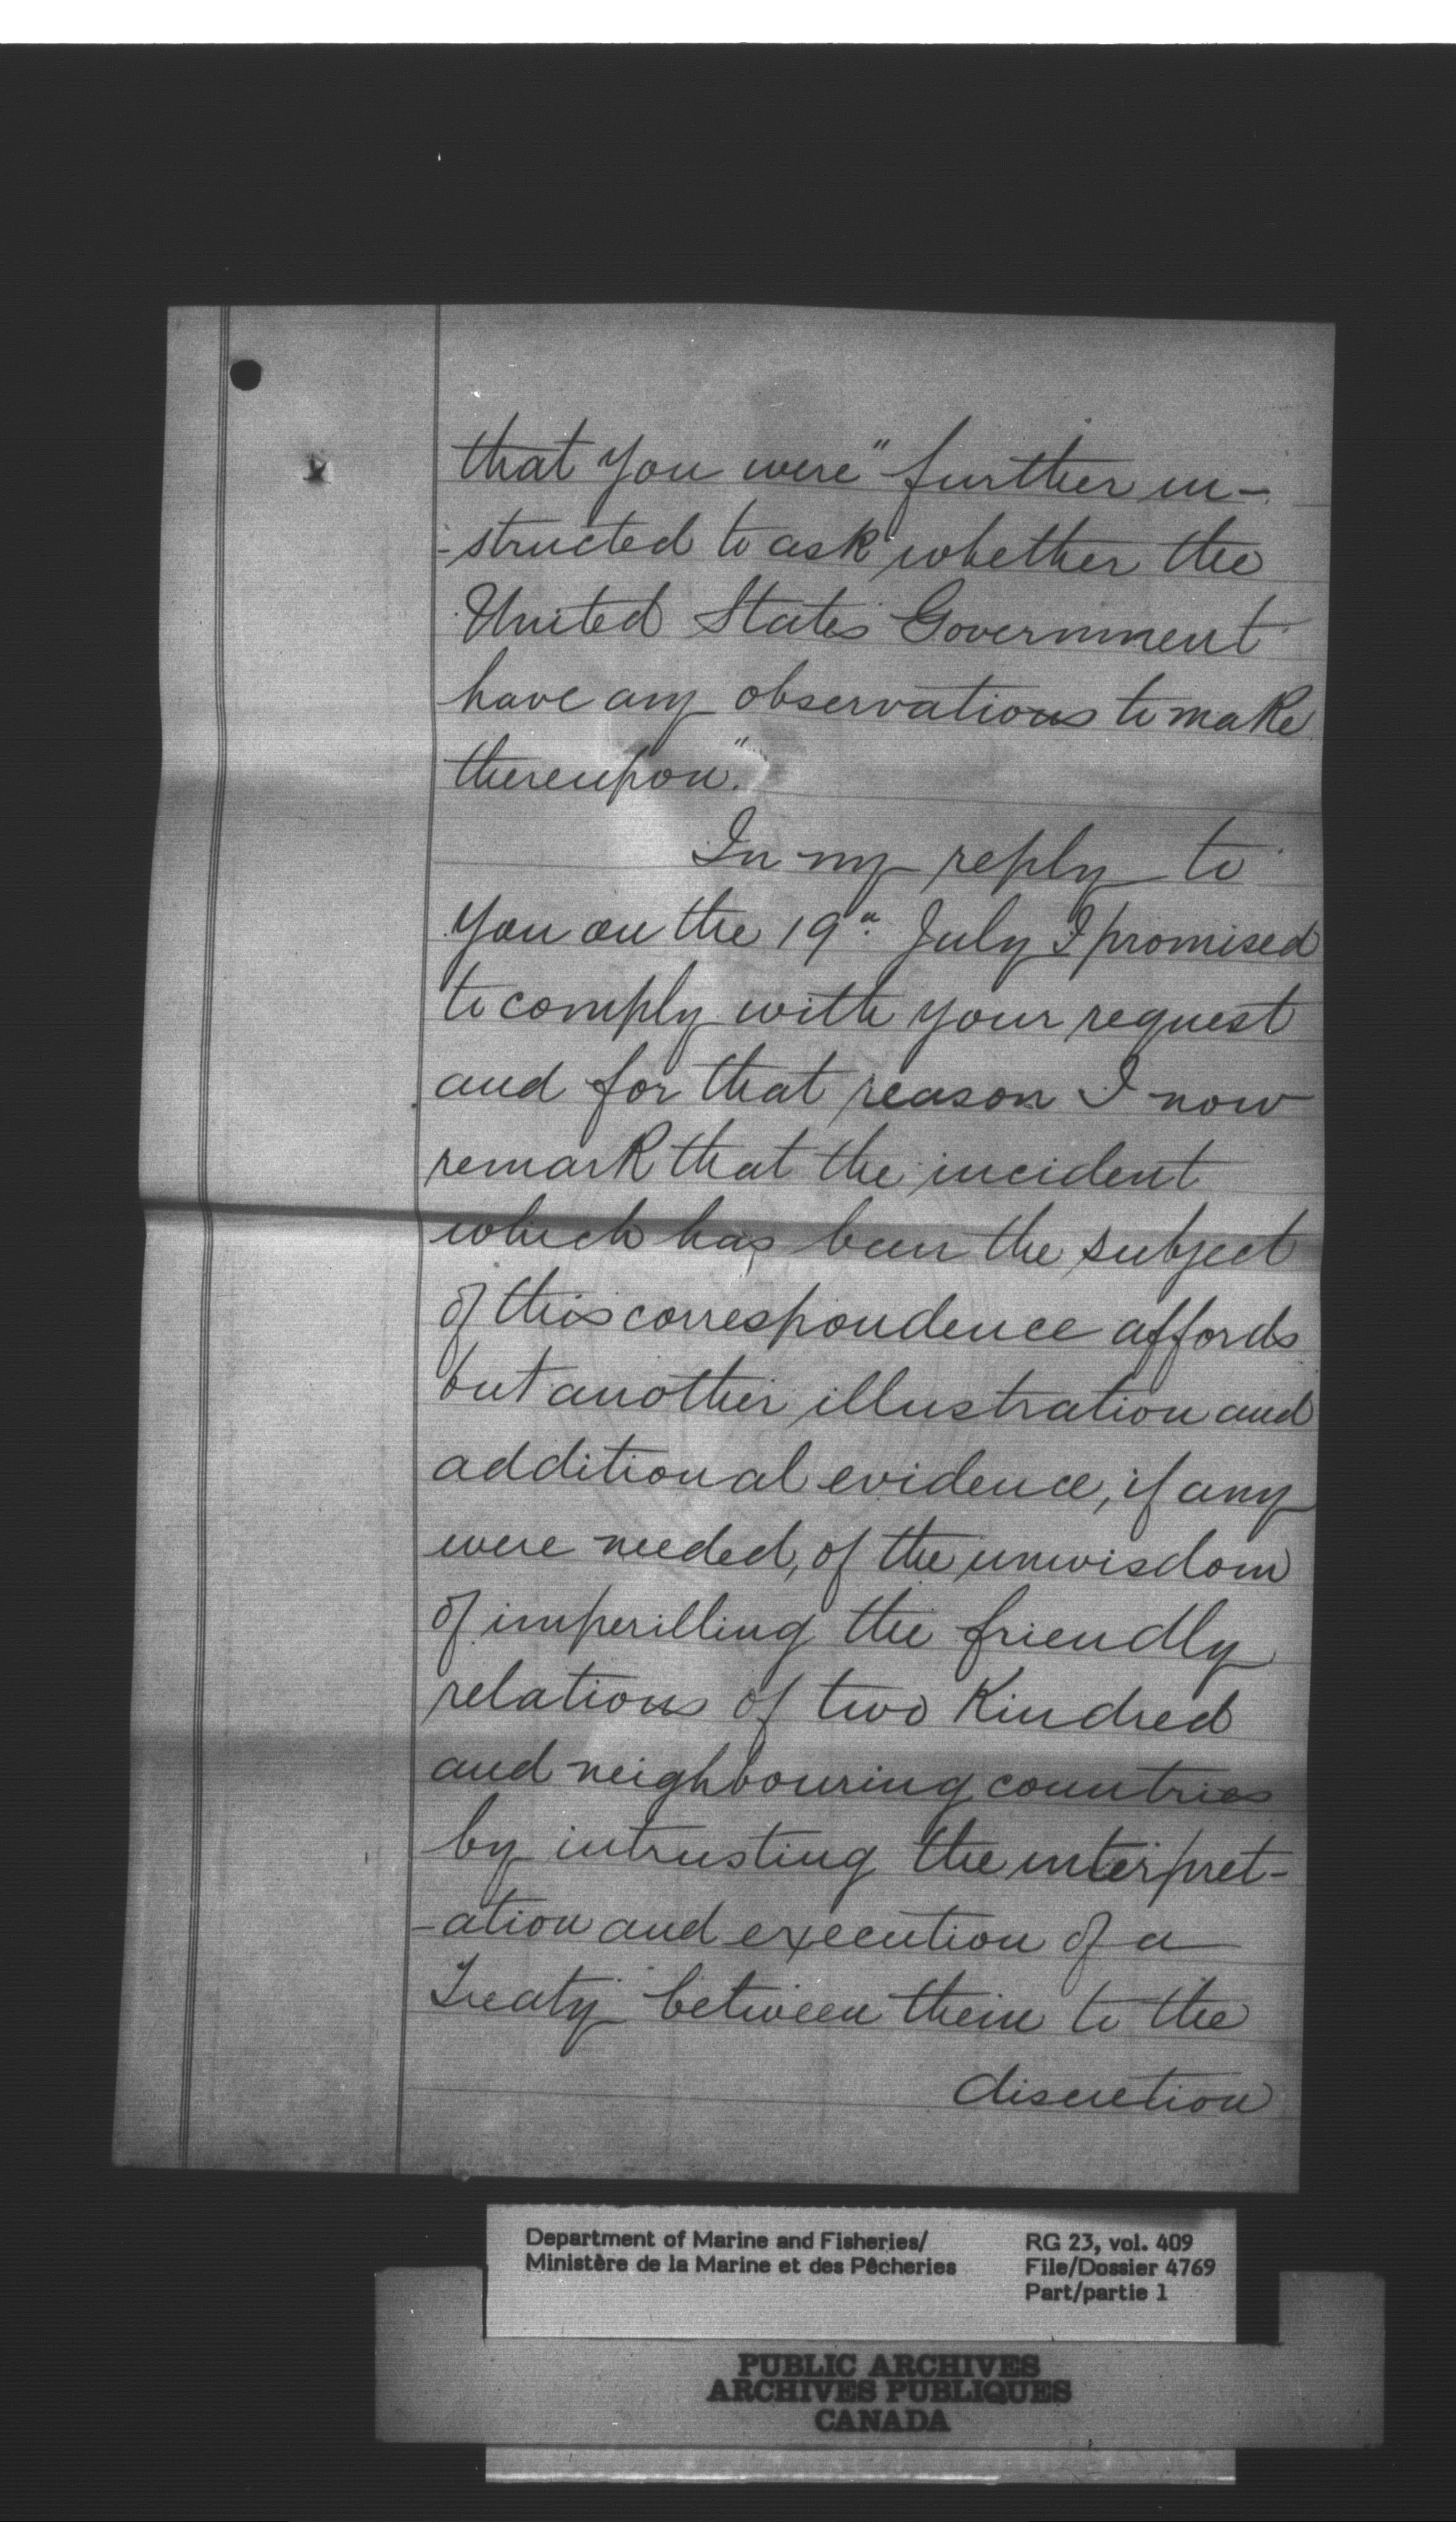 that you were "further in-
-structed to ask whether the
United States Government
have any observations to make
thereupon".
In my reply to
you on the 19th July I promised
to comply with your request
and for that reason I now
remark that the incident
which has been the subject
of this correspondence affords
but another illustration and
additional evidence, if any
were needed, of the unwisdom
of imperilling the friendly
relations of two Kindred
and neighbouring countries
by intrusting the interpret-
-ation and execution of a
Treaty between them to the
discretion
Department of Marine and Fisheries/
Ministère de la Marine et des Pêcheries
RG 23, vol. 409
File/Dossier 4769
Part/partie 1
PUBLIC ARCHIVES
ARCHIVES PUBLIQUES
CANADA